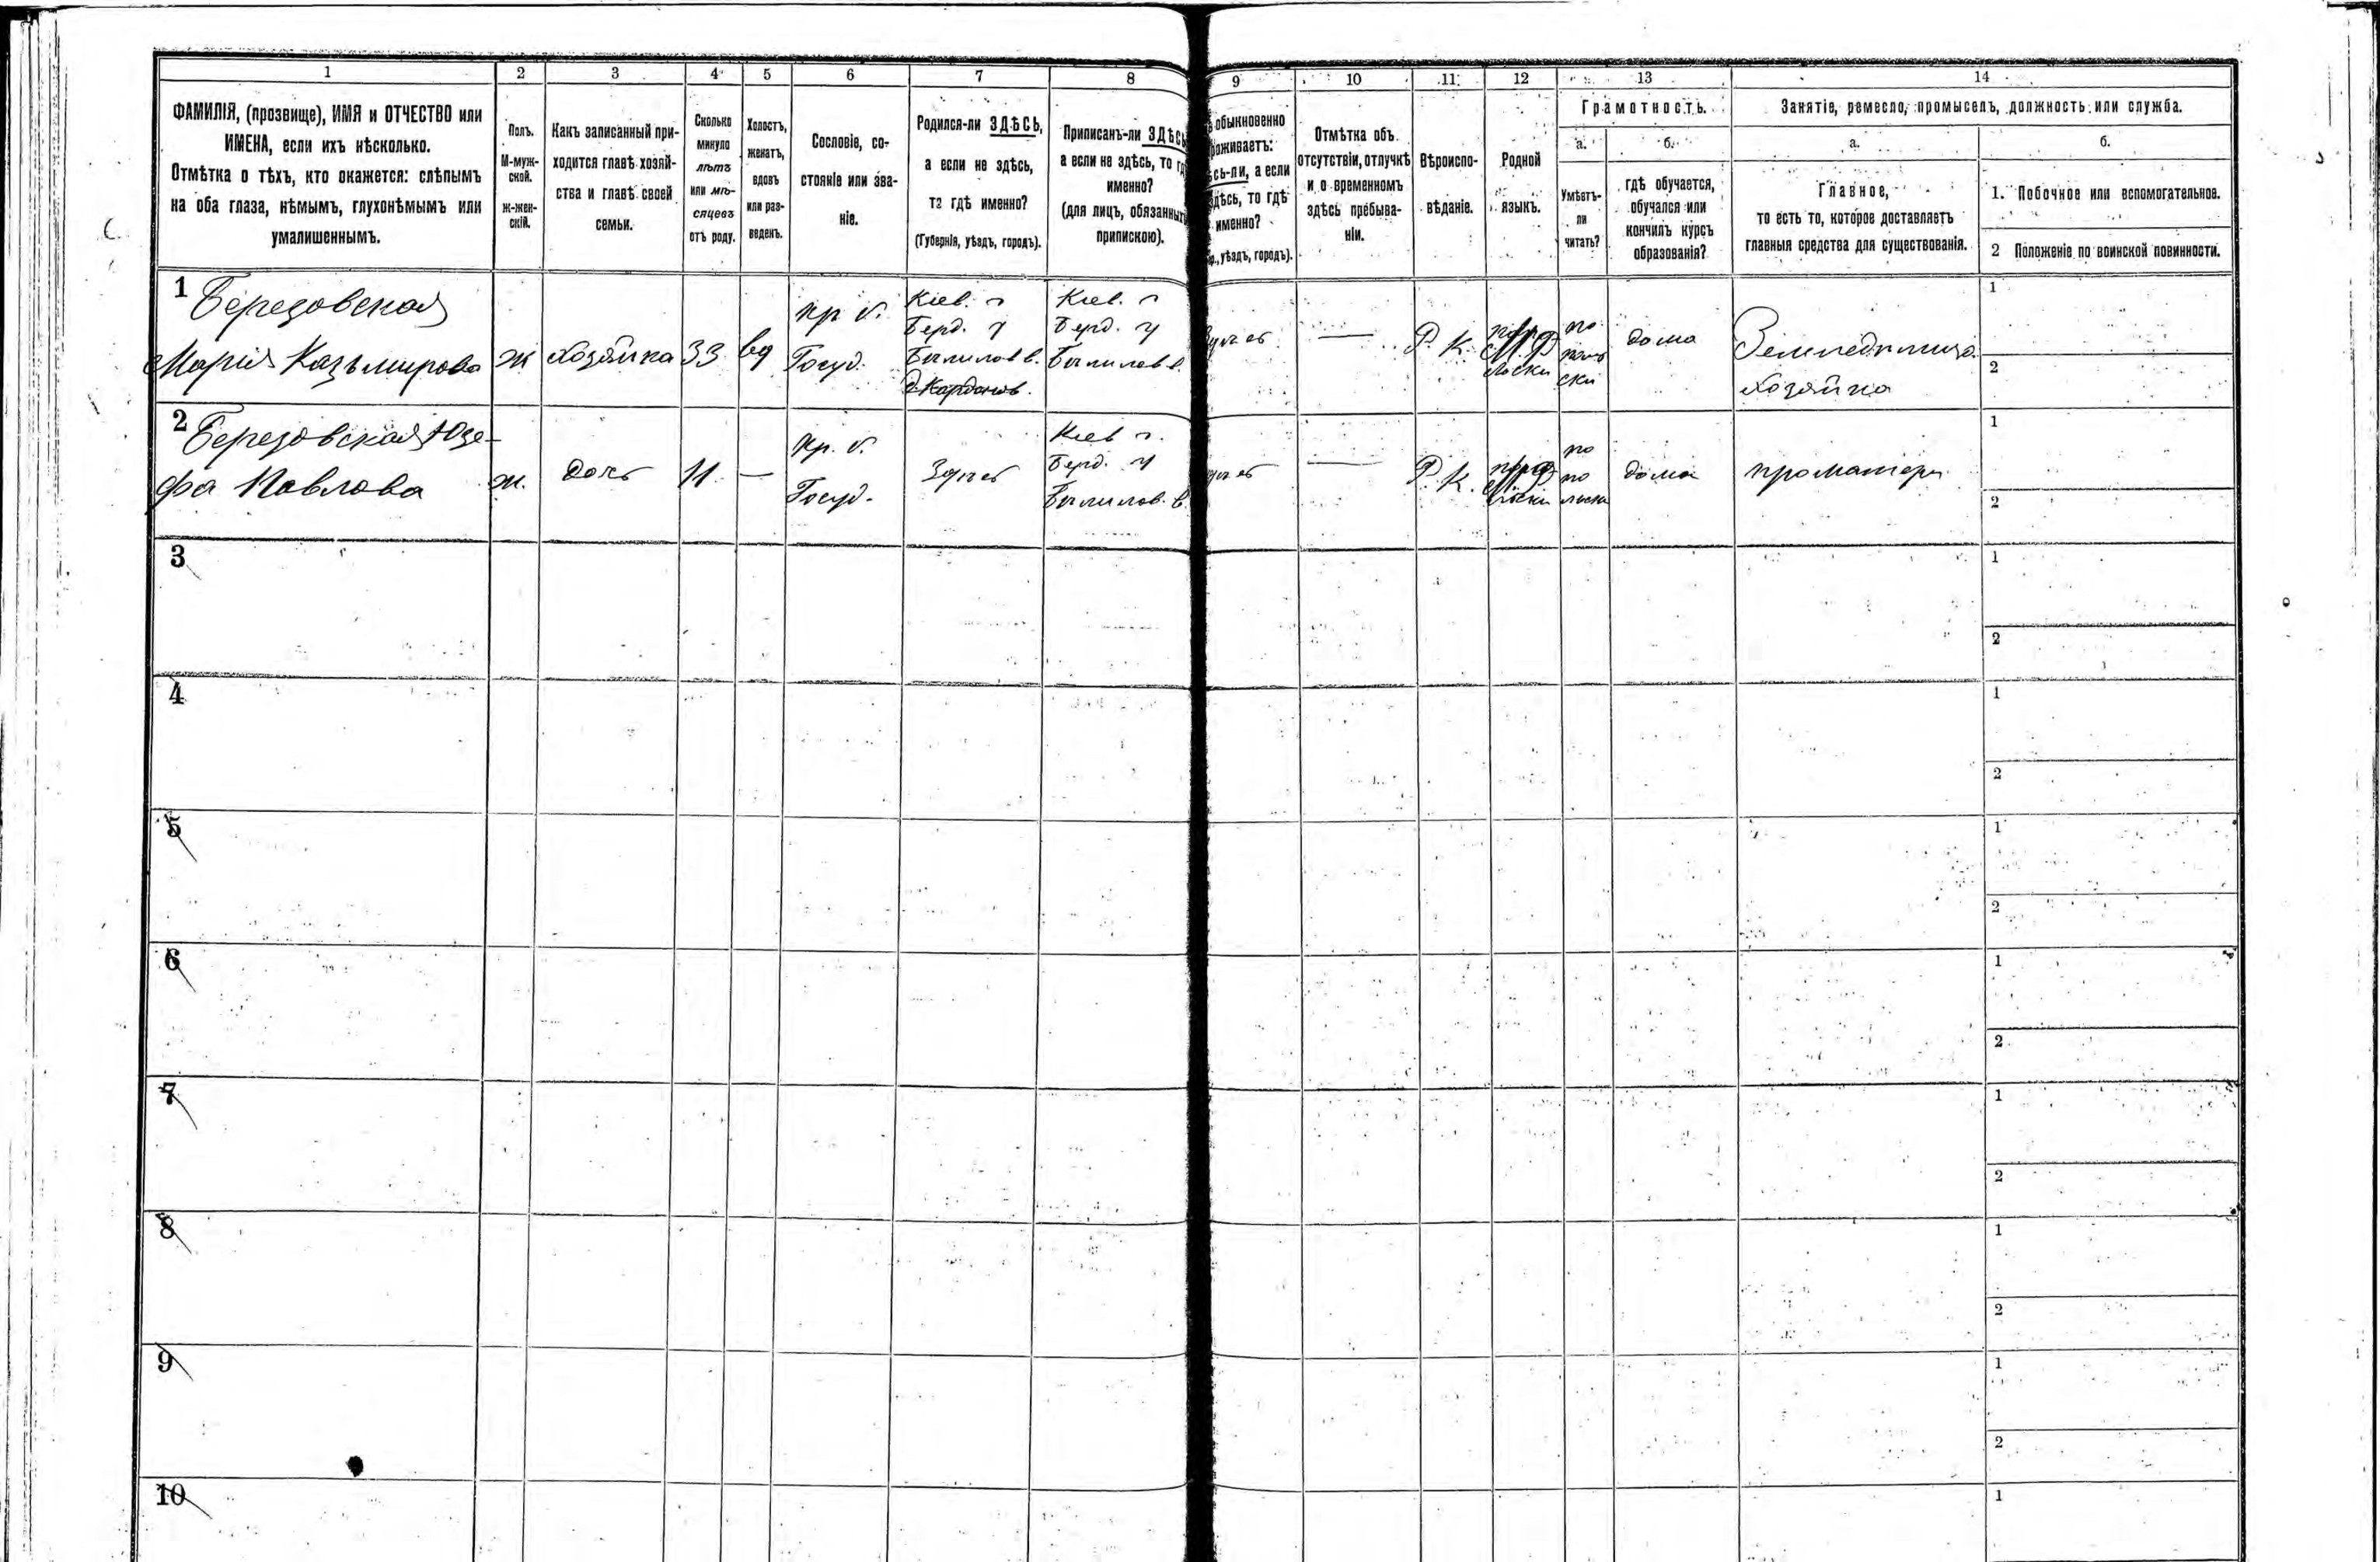 1
2
3
4
5
6
7
8
9
10
11
12
13
14
ФАМИЛІЯ, (прозвище), ИМЯ и ОТЧЕСТВО или
ИМЕНА, если ихъ нѣсколько.
Отмѣтка о тѣхъ, кто окажется: слѣпымъ
на оба глаза, нѣмымъ, глухонѣмымъ или
умалишеннымъ.
Полъ.
М-муж-
ской.
Ж-жен-
скій.
Какъ записанный при-
ходится главѣ хозяй-
ства и главѣ своей
семьи.
Сколько
минуло
лѣтъ
или мѣ-
сяцевъ
отъ роду.
Холостъ,
женатъ,
вдовъ
или раз-
веденъ.
Сословіе, со-
стояніе или зва-
ніе.
Родился-ли ЗДѢСЬ,
а если не здѣсь,
то гдѣ именно?
(Губернія, уѣздъ, городъ).
Приписанъ-ли ЗДѢСЬ
а если не здѣсь, то
именно?
(для лицъ, обязанныхъ
припискою).
обыкновенно
проживаетъ:
здѣсь-ли, а если
здѣсь, то гдѣ
именно?
уѣздъ, городъ).
Отмѣтка объ
отсутствіи, отлучкѣ
и о временномъ
здѣсь пребыва-
ніи.
Вѣроиспо-
вѣданіе.
Родной
языкъ.
Грамотность.
а.
Умѣетъ-
ли
читать?
б.
гдѣ обучается,
обучался или
кончилъ курсъ
образованія?
Занятіе, ремесло, промыселъ, должность или служба.
а.
Главное,
то есть то, которое доставляетъ
главныя средства для существованія.
б.
1. Побочное или вспомогательное.
2 Положеніе по воинской повинности.
1
Березовская
Марія Казьмирова
ж
хозяйка
33
вд
кр. б.
Госуд.
Кіев. г
Берд. у
в.
Кіев. г
Берд. у
в.
здѣсь
—
Р. К.
по
поль
ски
дома
хозяйка
1
2
2
Березовская Юзе-
фа Павлова
ж.
дочь
11
—
кр. б.
Госуд.
Здѣсь
Кіев г.
Берд. у
в.
здѣсь
—
Р. К.
по
по
льски
дома
при матери
1
2
3
1
2
4
1
2
5
1
2
6
1
2
7
1
2
8
1
2
9
1
2
10
1